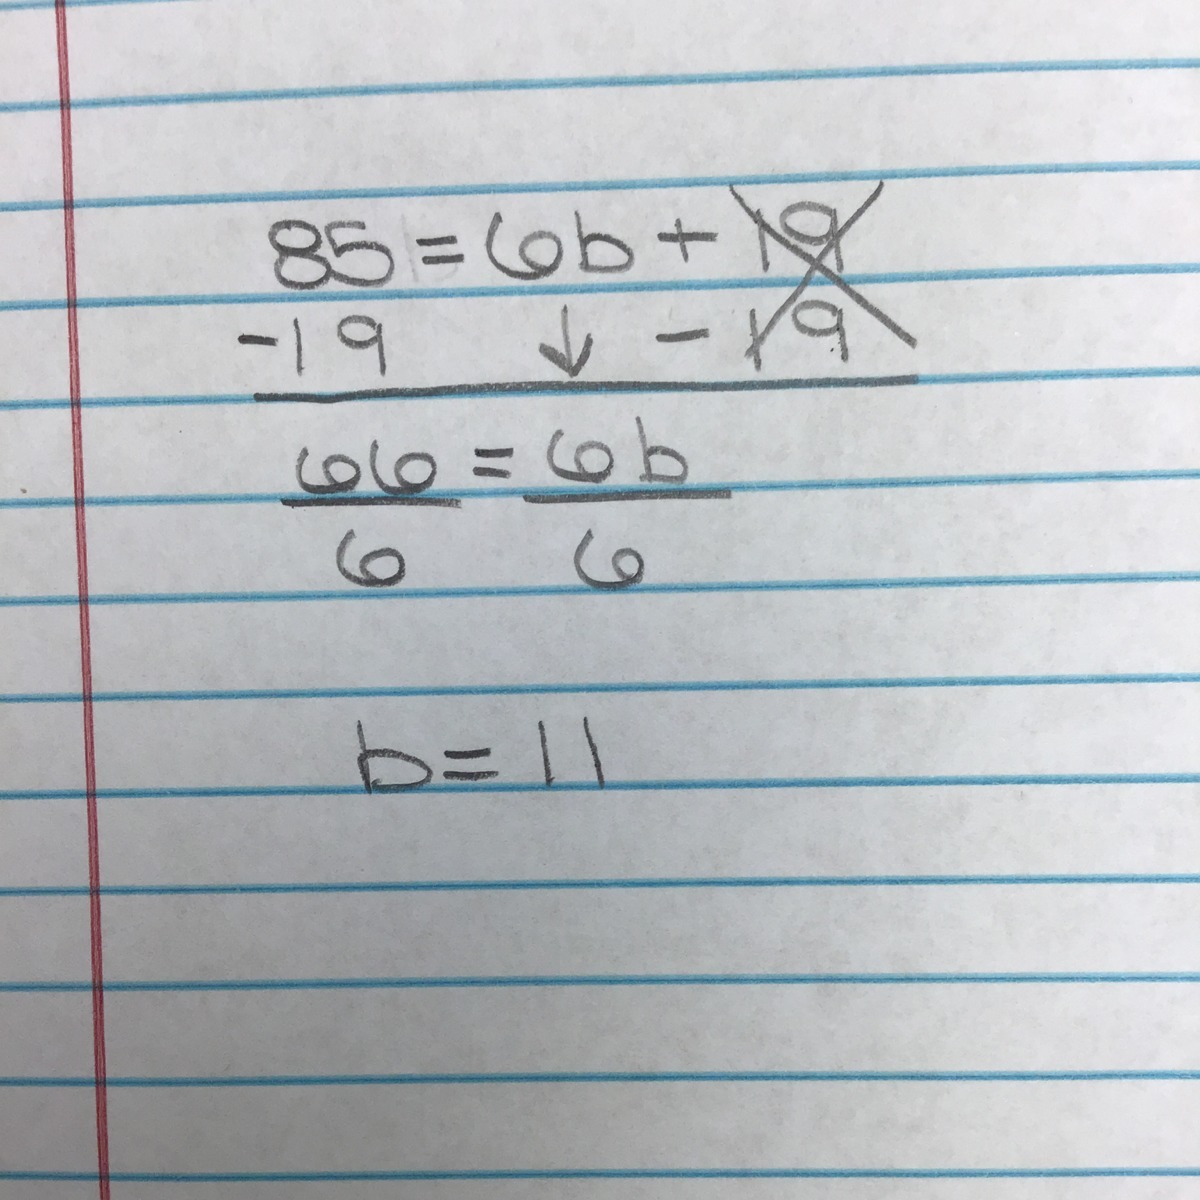 85 = 6b + 19
-19 ↓ - 19
66 = 6b
6 6
b = 11